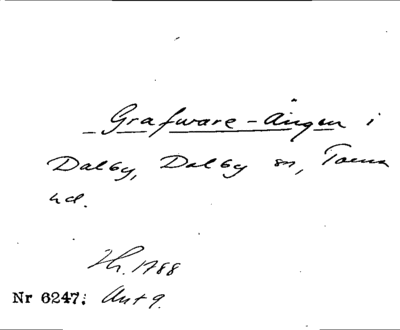 Grafware-Ängen i
Dalby, Dalby sn, Torna
hd.
1788
Nr 6247: Akt 9.